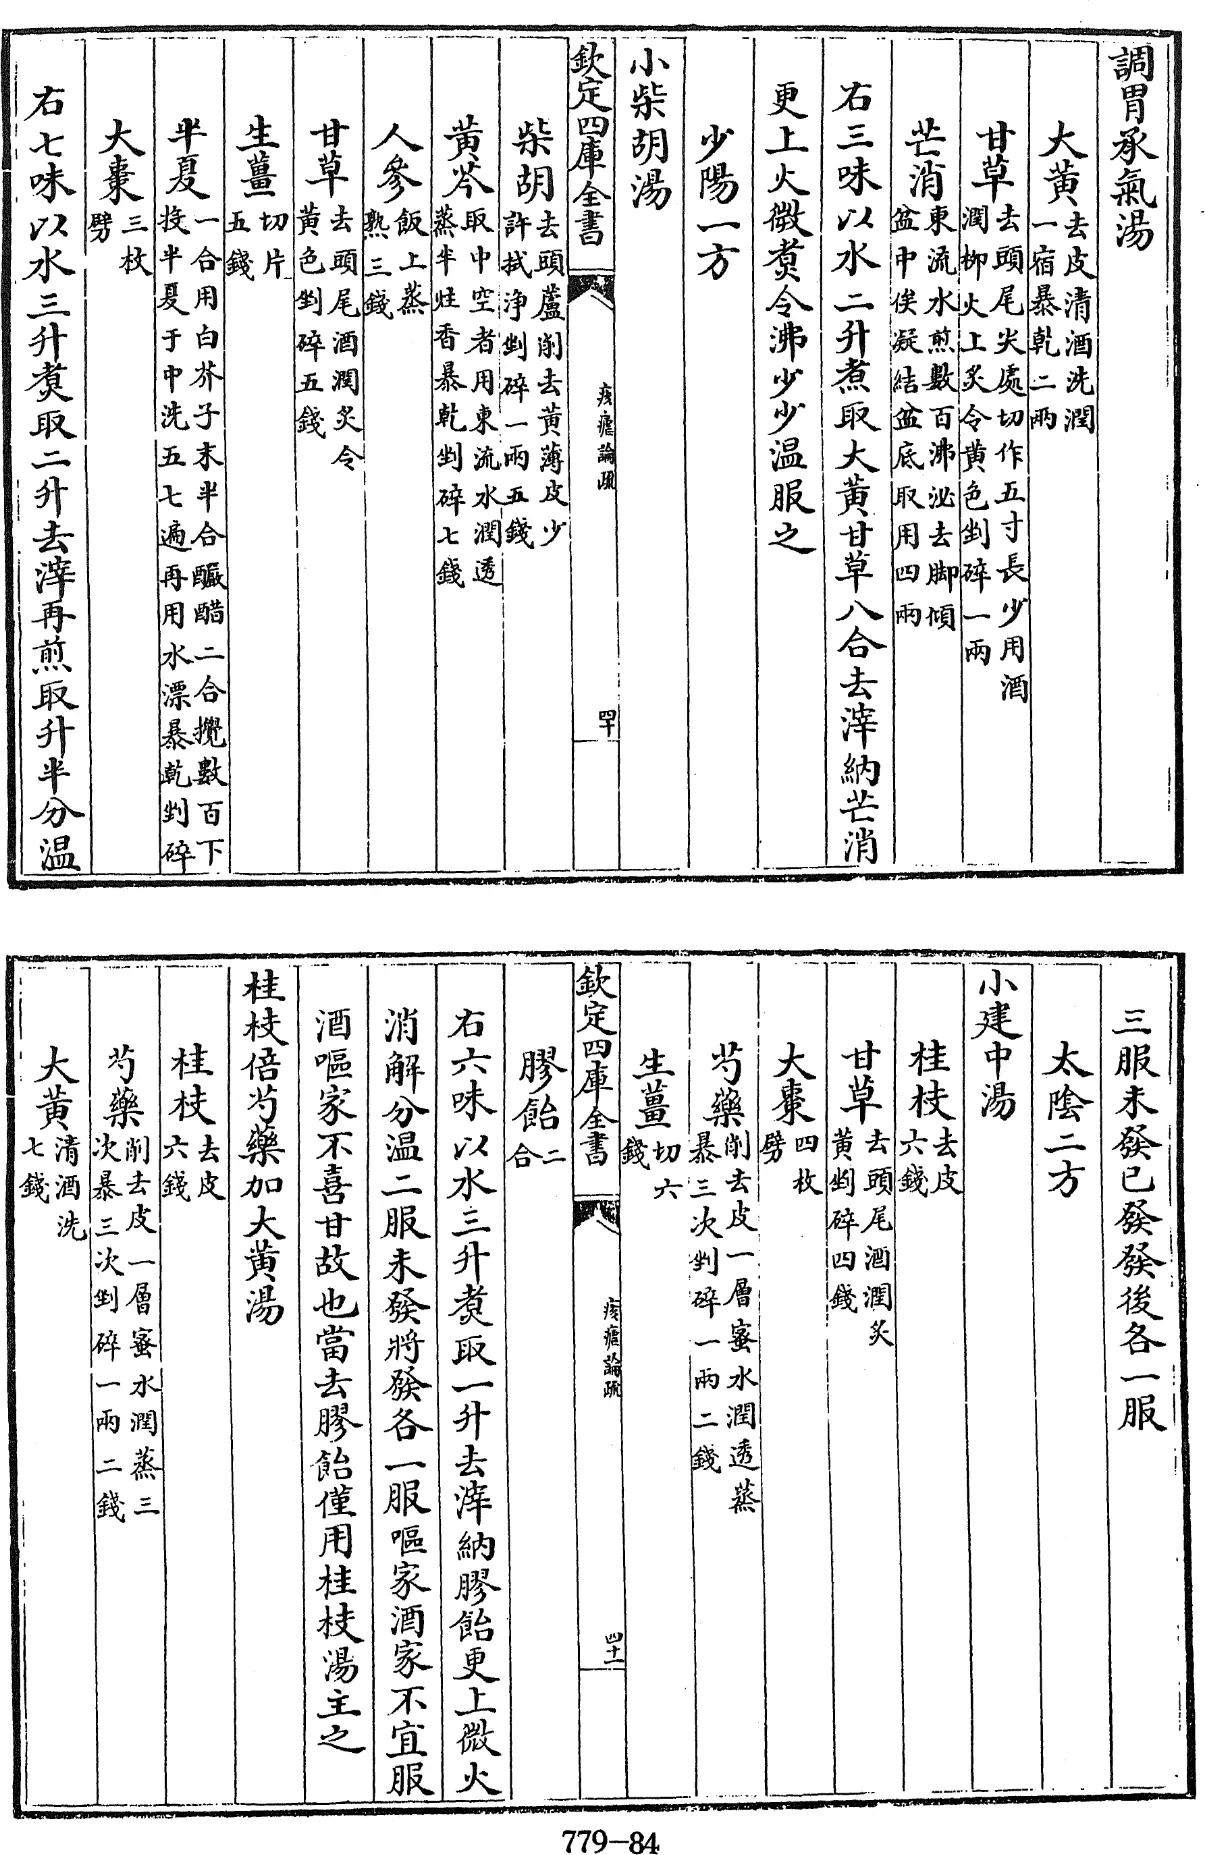 調胃承氣湯
大黃去皮清酒洗潤一宿暴乾二兩
甘草去頭尾尖處切作五寸長少用酒潤柳火上炙令黃色剉碎一兩
芒消東流水煎數百沸泌去脚傾盆中俟凝結盆底取用四兩
右三味以水二升煮取大黃甘草八合去滓納芒消
更上火微煑令沸少少温服之
少陽一方
小柴胡湯
欽定四庫全書
痎瘧論疏
四十
柴胡去頭蘆削去黃薄皮少許拭浄剉碎一兩五錢
黃芩取中空者用東流水潤透蒸半炷香暴乾剉碎七錢
人參飯上蒸熟三錢
甘草去頭尾酒潤炙令黃色剉碎五錢
生薑切片五錢
半夏一合用白芥子末半合釅醋二合攪數百下投半夏于中洗五七遍再用水漂暴乾剉碎
大棗三枚劈
右七味以水三升煑取二升去滓再煎取升半分温
三服未發已發發後各一服
太陰二方
小建中湯
桂枝去皮六錢
甘草去頭尾酒潤炙黃剉碎四錢
大棗四枚劈
芍藥削去皮一層蜜水潤透蒸暴三次剉碎一兩二錢
生薑切六錢
欽定四庫全書
痎瘧論疏
四十一
膠飴二合
右六味以水三升煑取一升去滓納膠飴更上微火
消解分温二服未發將發各一服嘔家酒家不宜服
酒嘔家不喜甘故也當去膠飴僅用桂枝湯主之
桂枝倍芍藥加大黃湯
桂枝去皮六錢
芍藥削去皮一層蜜水潤蒸三次暴三次剉碎一兩二錢
大黃清酒洗七錢
779-84